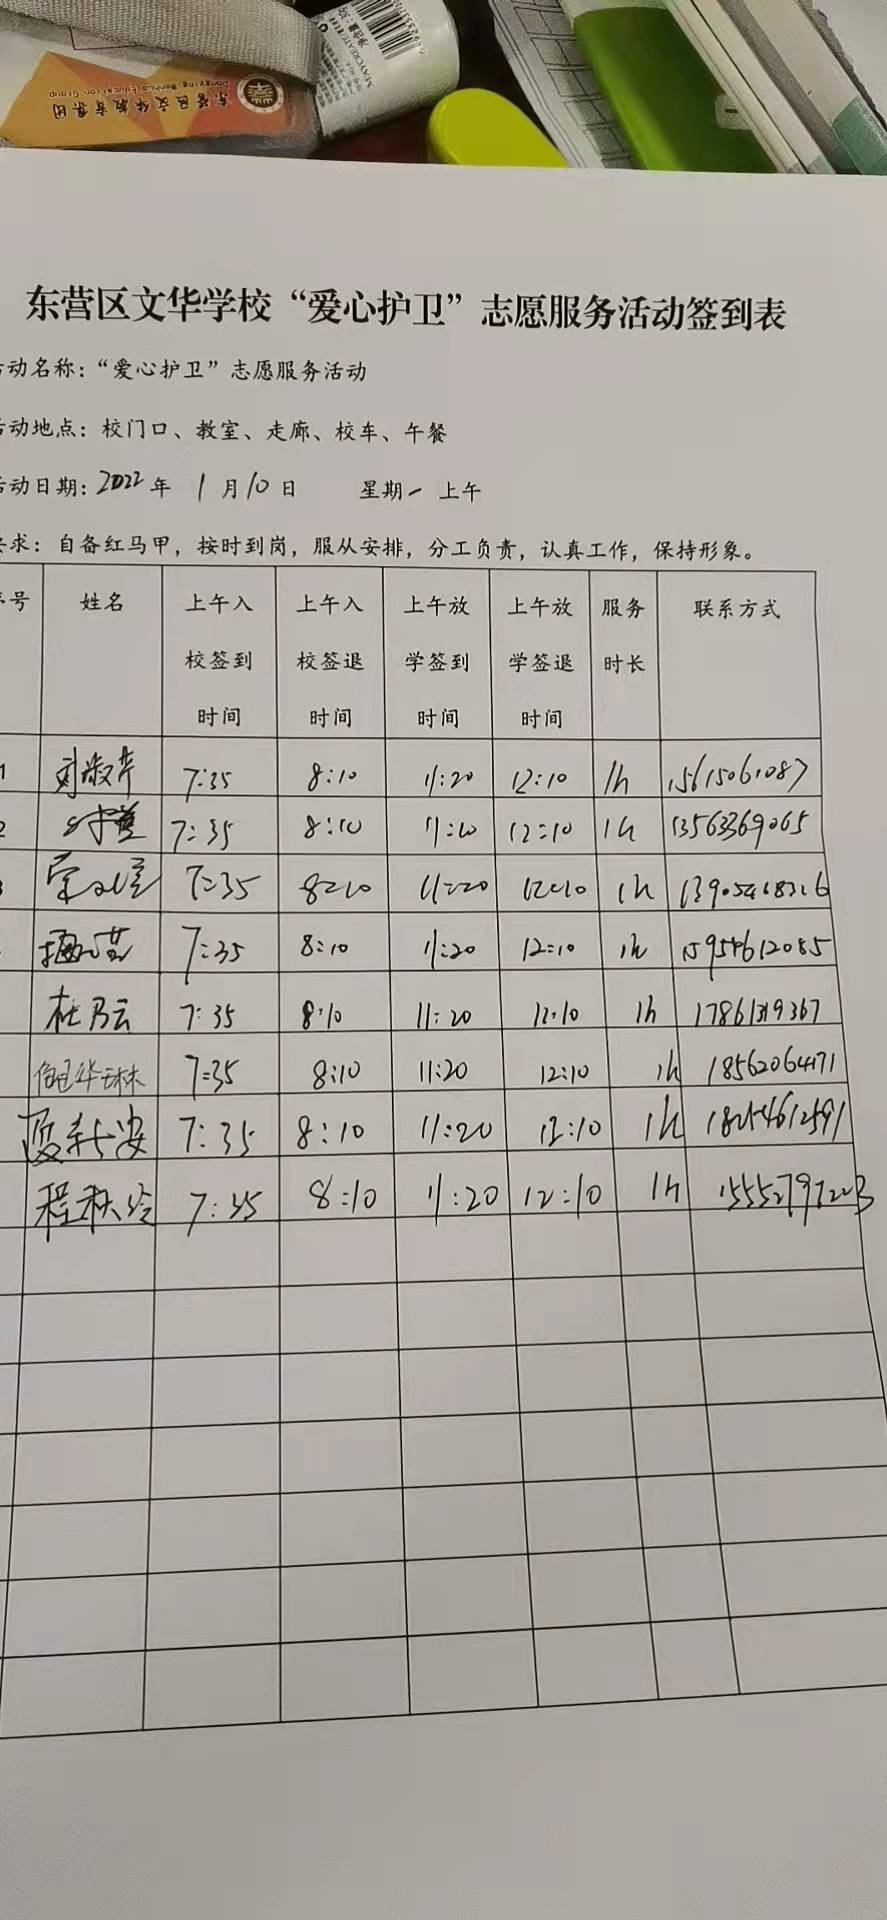 东营区文华教育集团
Dongying Wenhua Education Group
MAYCREATE
净含量:30g
东营区文华学校“爱心护卫”志愿服务活动签到表
动名称：“爱心护卫”志愿服务活动
动地点：校门口、教室、走廊、校车、午餐
动日期：2022年 1月10日 星期一 上午
求：自备红马甲，按时到岗，服从安排，分工负责，认真工作，保持形象。
号 姓名 上午入校签到时间 上午入校签退时间 上午放学签到时间 上午放学签退时间 服务时长 联系方式
1 刘淑芹 7:35 8:10 11:20 12:10 1h 15615061087
2 7:35 8:10 11:20 12:10 1h 13563369065
7:35 8:10 11:20 12:10 1h
7:35 8:10 11:20 12:10 1h 15954612085
杜乃云 7:35 8:10 11:20 12:10 1h 17861319367
7:35 8:10 11:20 12:10 1h 18562064171
7:35 8:10 11:20 12:10 1h 18254612591
程秋玲 7:35 8:10 11:20 12:10 1h